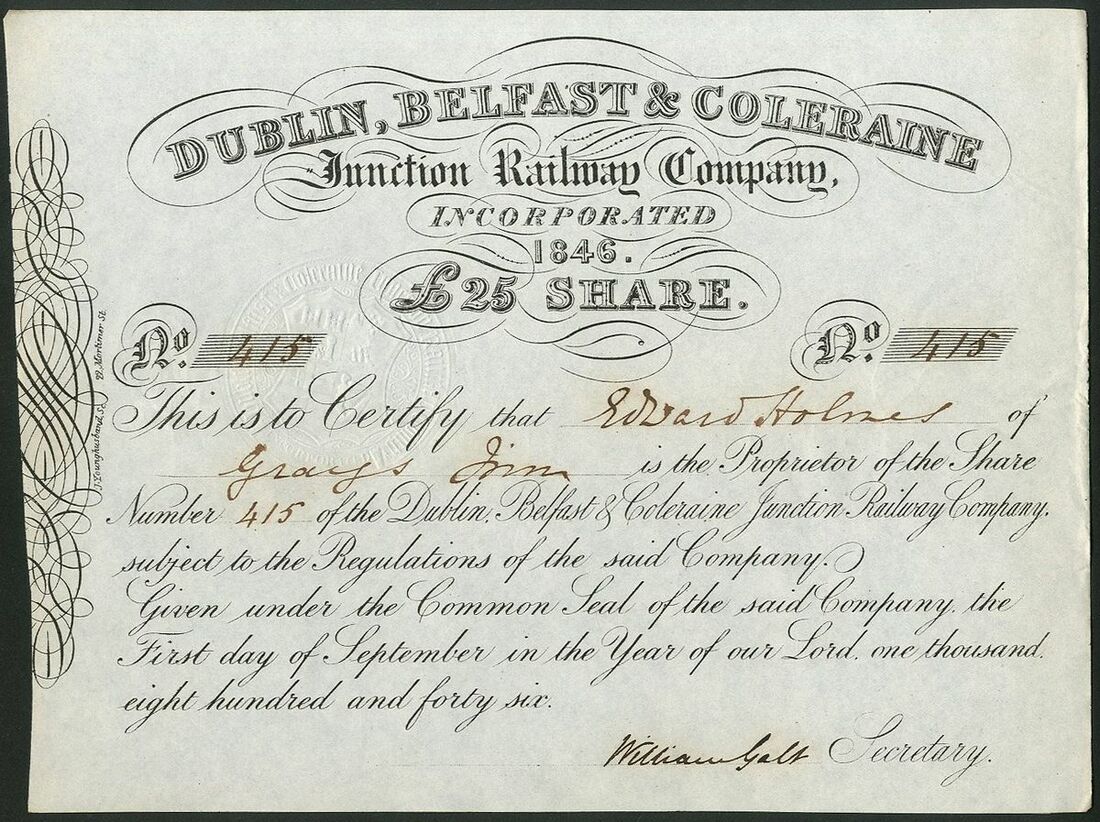 DUBLIN, BELFAST & COLERAINE
Junction Railway Company,
INCORPORATED
1846.
£25 SHARE.
No. 415 No. 415
This is to Certify that Edward Holmes of
Grays Inn is the Proprietor of the Share
Number 415 of the Dublin, Belfast & Coleraine Junction Railway Company,
subject to the Regulations of the said Company.
Given under the Common Seal of the said Company, the
First day of September in the Year of our Lord, one thousand
eight hundred and forty six.
William Galt Secretary.
J. Younghusband, Sc. Mortimer St.